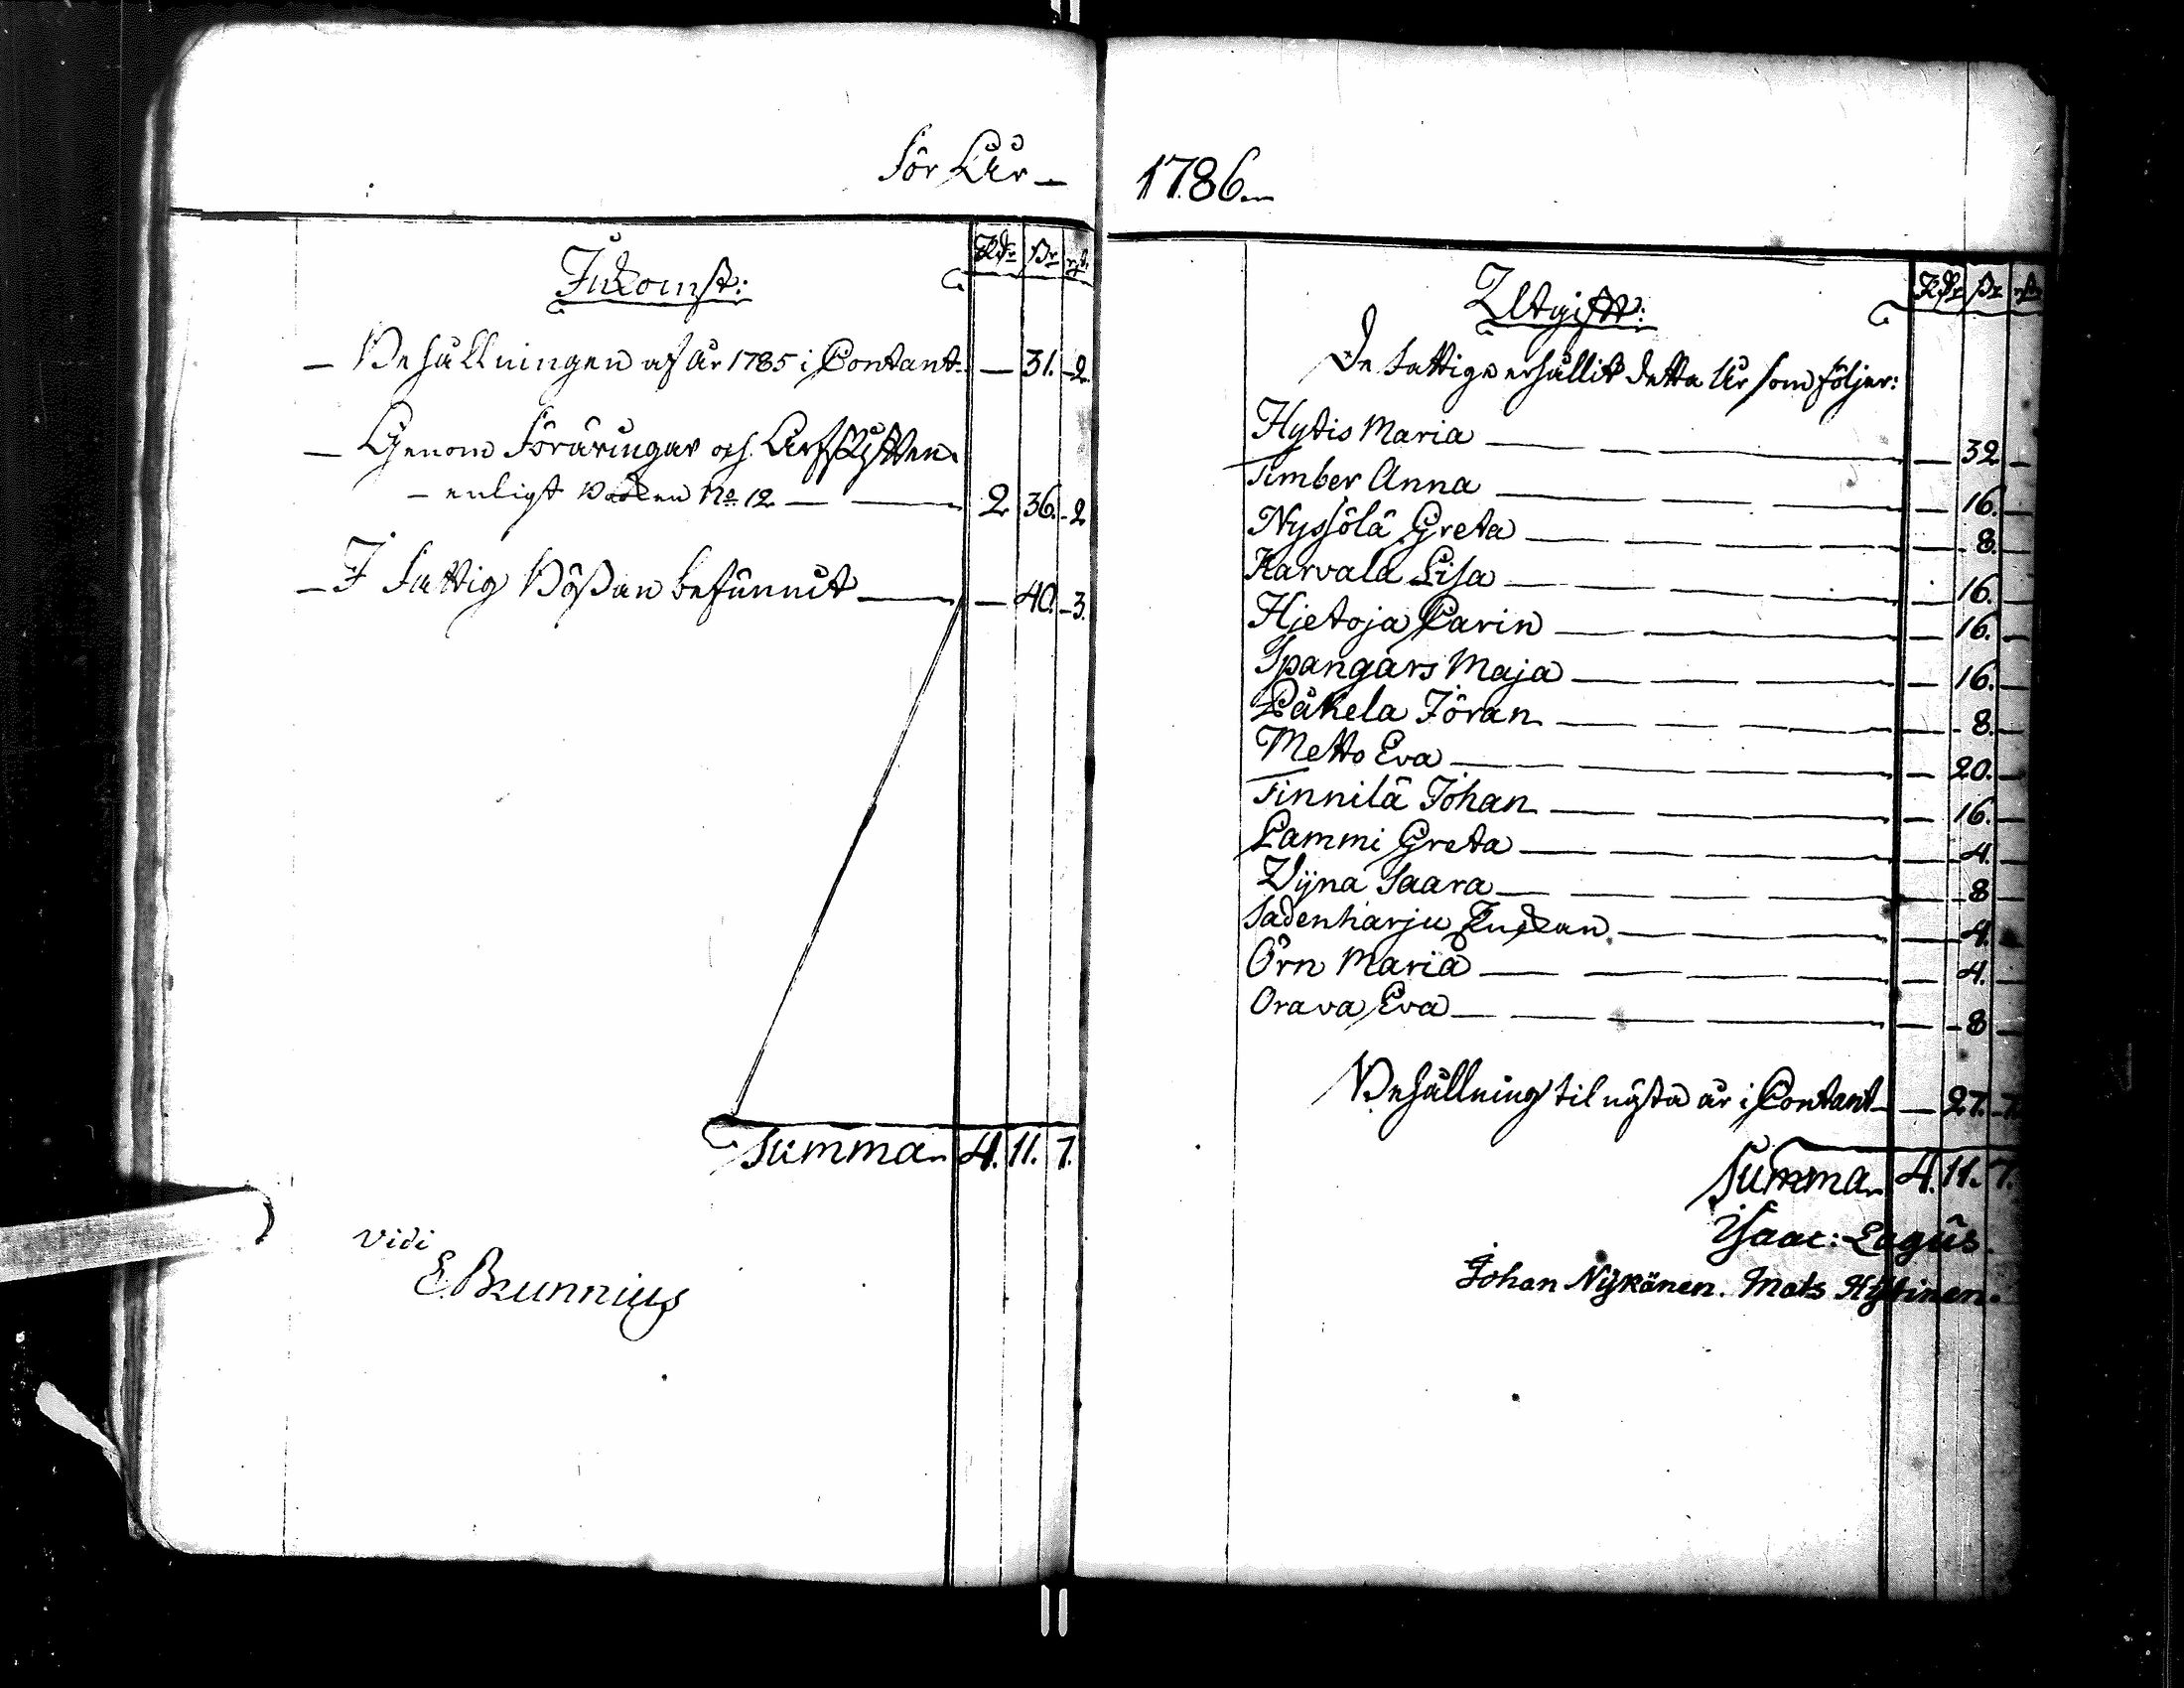 för År
Inkomst: Rdr ßr rst.
Behållningen af år 1785 i Contant — 31. 2
Genom föräringar och
enligt No 12 2 36. 2
I fattig Bößan befunnit — 40. 3.
Summa 4. 11. 7.
vidi
E. Brunnius
1786.
Utgift: Rdr ßr rst.
De fattige erhållit detta År som följer:
Hytis Maria — 32 —
Timber Anna — 16. —
Nyssölä Greta — 8. —
Karvala Lisa — 16. —
Hjetoja Carin — 16. —
Spangars Maja — 16. —
Påkela Jöran — 8. —
Metto Eva — 20. —
Finnilä Johan — 16. —
Lammi Greta — 4. —
Vijna Saara — 8 —
Sadenharju Enckan — 4. —
Örn Maria — 4. —
Orava Eva — 8 —
Behållning til nästa år i Contant — 27. 7.
Summa 4. 11. 7.
Isaac: Lagus.
Johan Nÿkänen. Mats Hÿtinen.